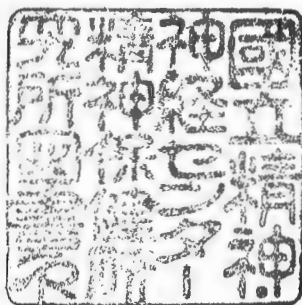 國立精神
神経センター
精神保健研
究所圖書